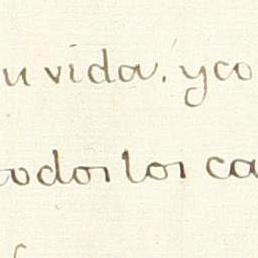 u vida. y co
odos los ca